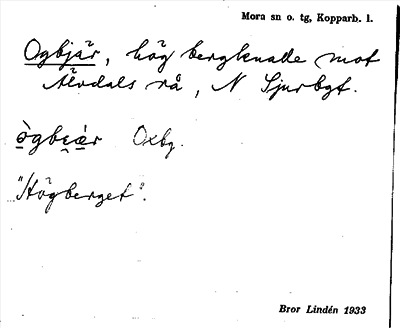 Mora sn o. tg, Kopparb. l.
Ogbjär, hög bergknalle mot
Älvdals rå, N Sjurbgt.
ògbe̯är Oxbg.
"Högberget".
Bror Lindén 1933